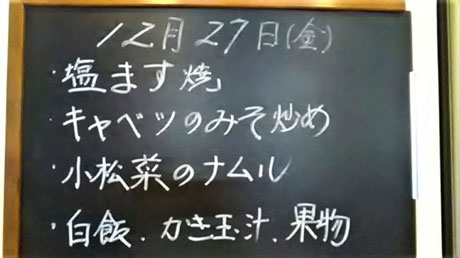 12月27日(金)
・塩ます焼
・キャベツのみそ炒め
・小松菜のナムル
・白飯.かき玉汁.果物